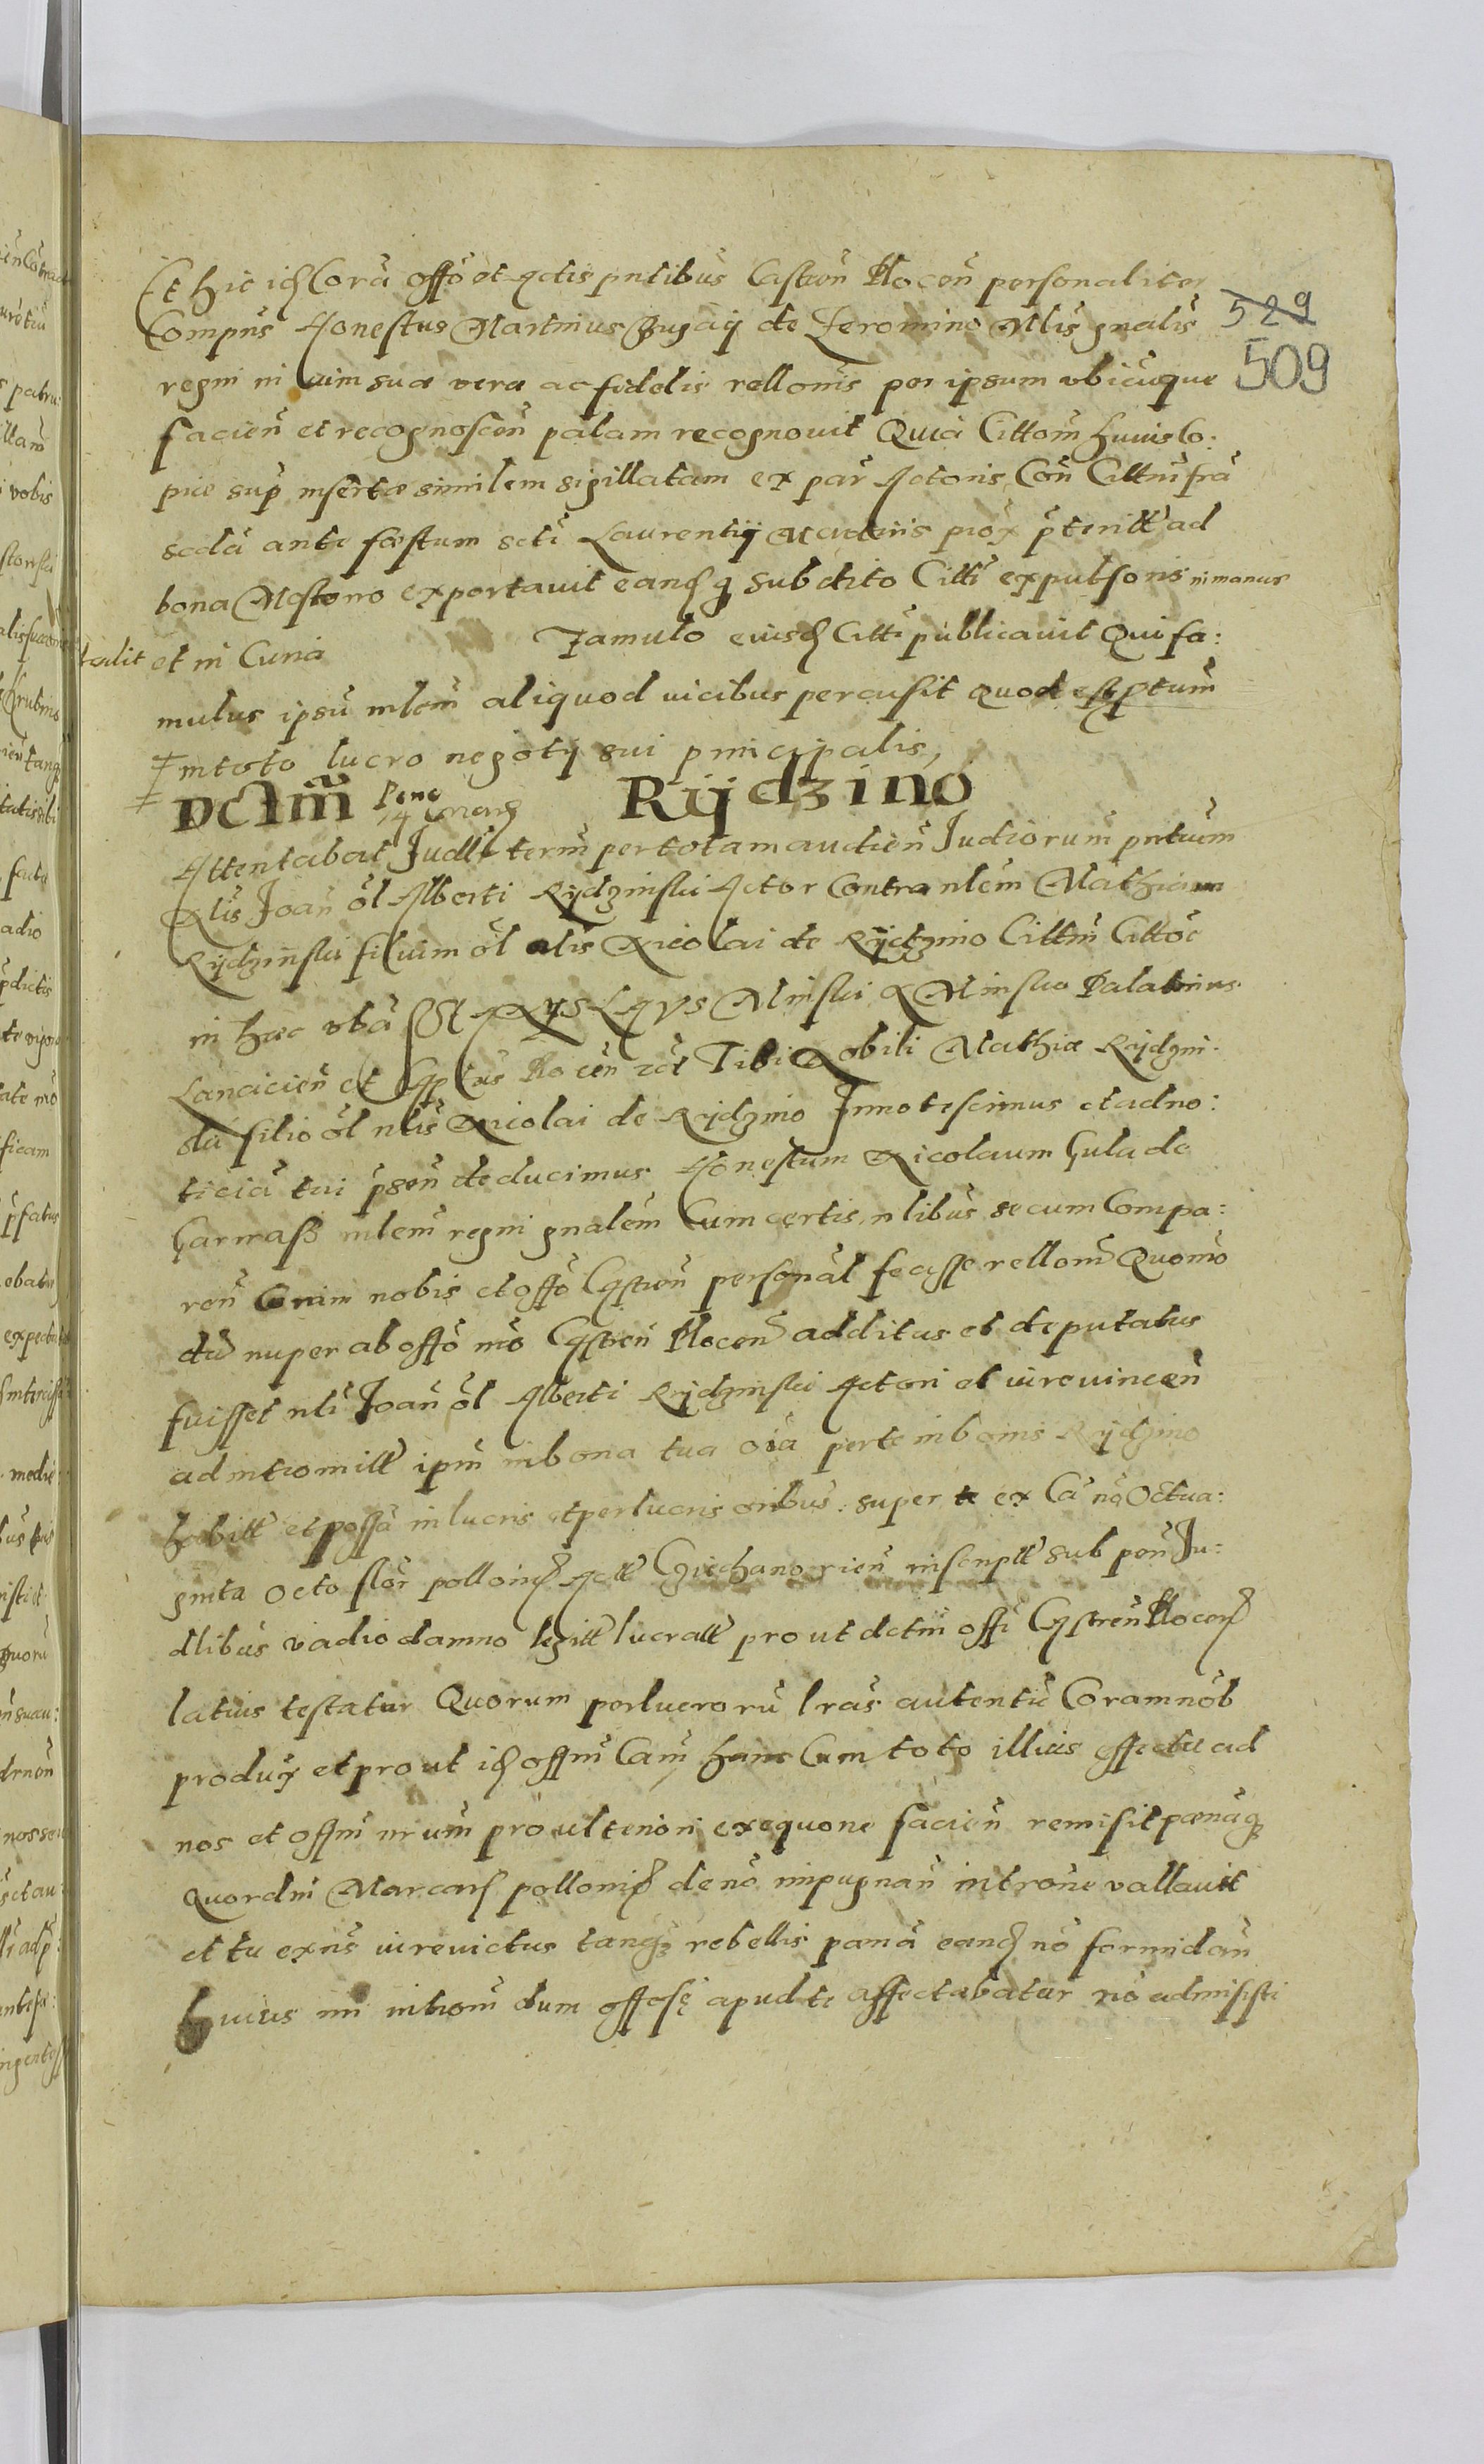 Et hic id Corā offō et Actis pntibūs Castren̄ Plocen̄ personaliter
Comprn̄s Honestus Martinus Bugaÿ de Jeromino Mlis gn̄alis
529
509
regni in vim suæ veræ ac fidelis rellonis per ipsum vbicūque
facien̄ et recognoscen̄ palam recognovit Quia Cittom̄ huius Co:
piæ sup̄ insertæ similem sigillatam ex par̄ Actoris Con̄ Cittm̄ fra
scda ante fæstum scti Laurentij Martiris prox p̄teritt ad
bona exportauit eandq sub dito Citti expulsonis in manus
tradit et in Curia Famulo eiusd Citti publicauit Qui fa:
mulus ipsū mlem̄ aliquod uicibus percusit quod est
In toto lucro negotÿ sui principalis,
Dctm̄ Pene 14 marc Rÿdzino
Attentabat Judlr term̄ per totam audien̄ Judiorum pntium
Nlis Joan̄ ol Alberti Rÿdzinski Actor Contra nlem̄ Mathiam
Rÿdzinski filium ol nlis Nicolai de Rÿdzino Cittm̄ Cittōe
in hæc vba Minski de Minsko Palatinus
Lancicien̄ et Captus Plocen̄ Tibi Nobili Mathiæ Rÿdzin:
ski filio ol nlis Nicolai de Rÿdzino Innotescimus et ad no:
ticiā tui p̄sen̄ deducimus Honestum Nicolaum Gula de
mlem̄ regni gnalem̄ Cum certis nlibūs secum Compa:
ren̄ Coram nobis et offō Castren̄ personal̄ fecisse rellom̄ Quomo
do nuper ab offō nrō Castren̄ Plocen̄ additus et deputatus
fuisset nli Joan̄ ol Alberti Rÿdzinski Actori et iurevincen̄
ad intromitt ipm̄ in bona tua oia per te in bonis Rÿdzino
habitt et possa in lucris et perlucris oribus super te ex Cā nō Octua:
ginta Octo flor̄ pollonic Actt inscriptt sub pen̄ Ju:
dlibus vadio damno legitt lucratt prout dctm̄ offi Castren̄ Plocen̄
latius testatur Quorum perlucrorū lras autenticē Coram nob̄
produx et prout id offm̄ Cam̄ hanc Cum toto illius effectu ad
nos et offm̄ nrum̄ pro ulteriori exequone facien̄ remisit pænaq
quordm̄ Marcarū pollonic de nō impugnan̄ introne vallauit
et tu exns iurevictus tanq rebellis pænā eand nō formidan̄
huius mi introm̄ dum offose apud te affectabatur nō admisisti